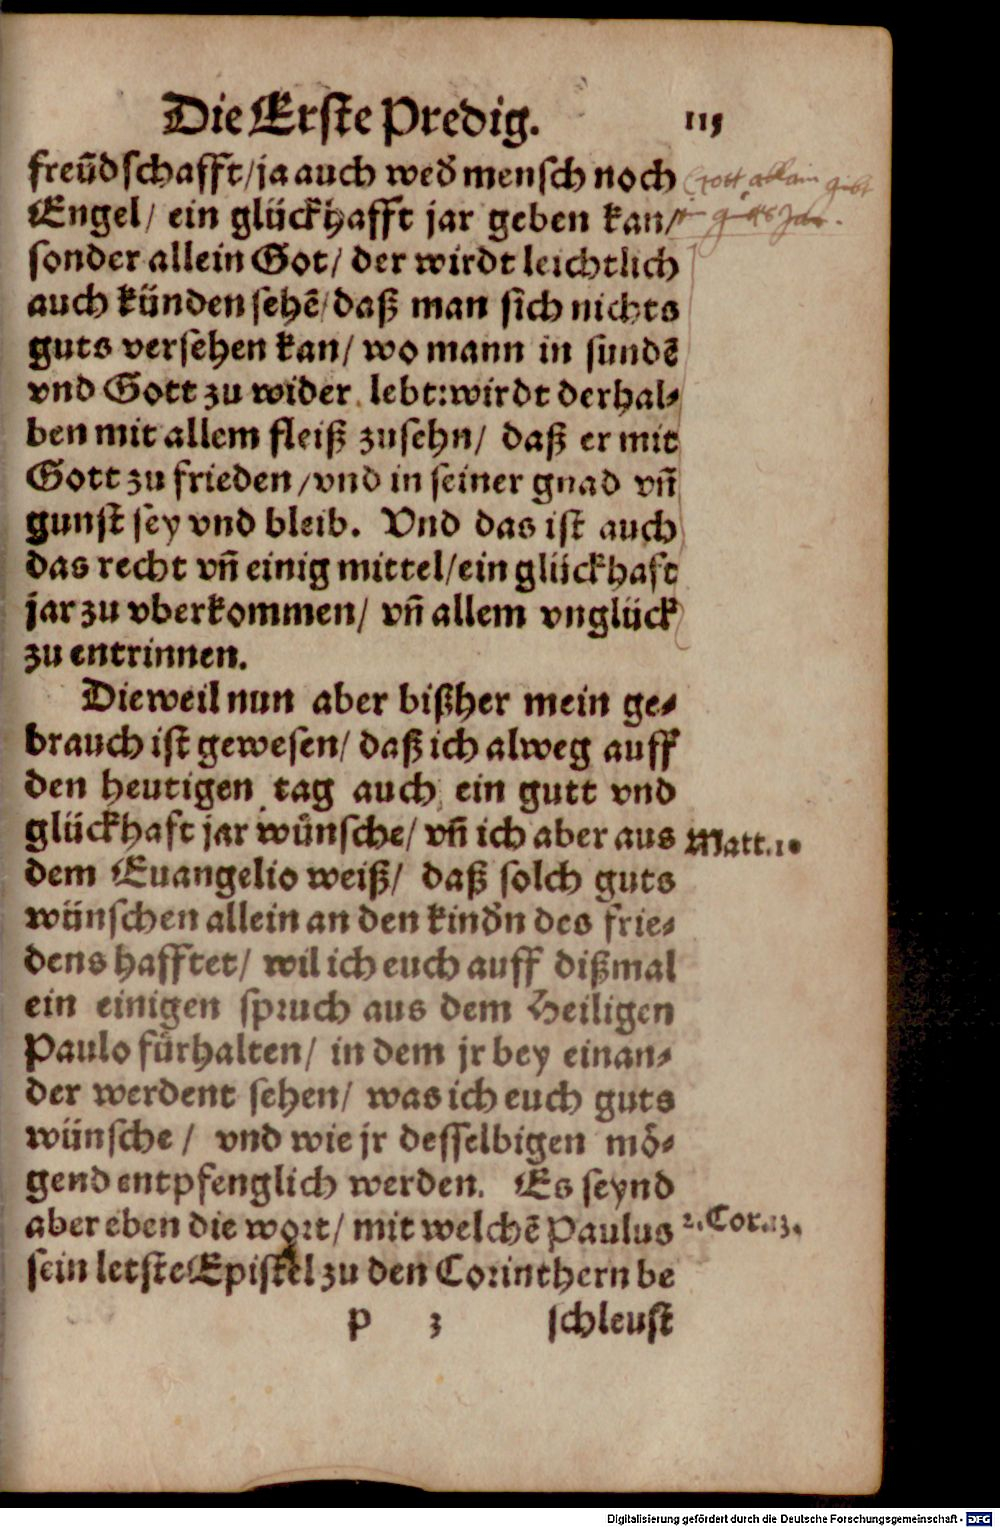 Die Erste Predig. 115
freūdschafft/ja auch wed᷑ mensch noch
Gott allain gibt
Engel/ ein glückhafft jar geben kan/
ein guts Jar.
sonder allein Got/ der wirdt leichtlich
auch künden sehē/daß man sich nichts
guts versehen kan/ wo mann in sundē
vnd Gott zu wider lebt:wirdt derhal-
ben mit allem fleiß zusehn/ daß er mit
Gott zu frieden/vnd in seiner gnad vn̄
gunst sey vnd bleib. Vnd das ist auch
das recht vn̄ einig mittel/ein glückhaft
jar zu vberkommen/ vn̄ allem vnglück
zu entrinnen.
Dieweil nun aber bißher mein ge-
brauch ist gewesen/ daß ich alweg auff
den heutigen tag auch ein gutt vnd
glückhaft jar wünsche/ vn̄ ich aber aus
Matt.10
dem Euangelio weiß/ daß solch guts
wünschen allein an den kind᷑n des frie-
dens hafftet/ wil ich euch auff dißmal
ein einigen spruch aus dem Heiligen
Paulo fürhalten/ in dem jr bey einan-
der werdent sehen/ was ich euch guts
wünsche/ vnd wie jr desselbigen mö-
gend entpfenglich werden. Es seynd
aber eben die wort/ mit welchē Paulus
2.Cor.13.
sein letste Epistel zu den Corinthern be
P 3 schleust
Digitalisierung gefördert durch die Deutsche Forschungsgemeinschaft - DFG